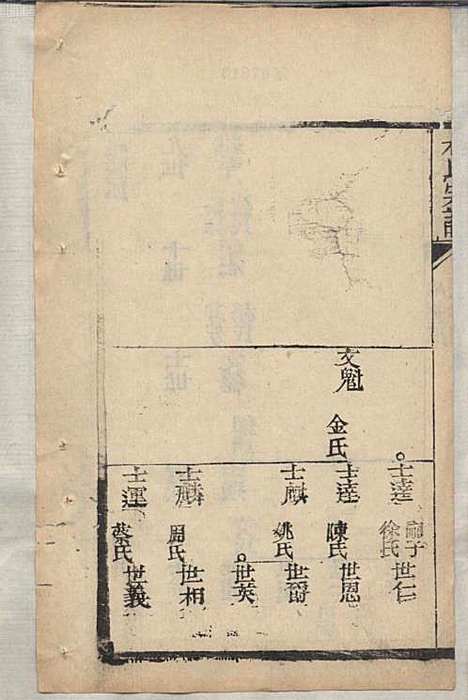 氏宗譜
文魁
金氏
士達
嗣子
徐氏
世仁
士
陳氏
世恩
士麒
姚氏
世爵
世英
士麟
周氏
世相
士運
蔡氏
世義